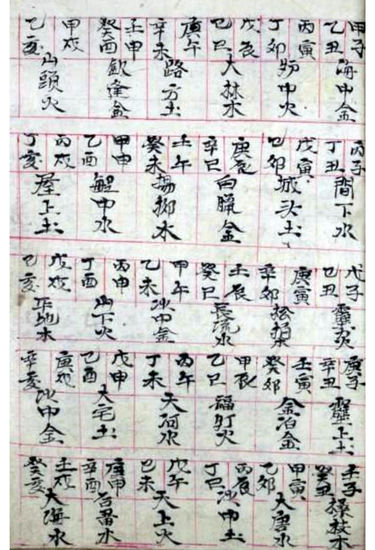 甲子乙丑 海中金
丙寅丁卯 炉中火
戊辰己巳 大林木
庚午辛未 路方土
壬申癸酉 鋒金
甲戌乙亥 山頭火
丙子丁丑 間下水
戊寅己卯 城头土
庚辰辛巳 白臘金
壬午癸未 楊柳木
甲申乙酉 中水
丙戌丁亥 屋上土
戊子己丑 火
庚寅辛卯 松柏木
壬辰癸巳 長流水
甲午乙未 沙中金
丙申丁酉 山下火
戊戌己亥 平地木
庚子辛丑 壁上土
壬寅癸卯 金泊金
甲辰乙巳 福灯火
丙午丁未 天河水
戊申己酉 大宅土
庚戌辛亥 沙中金
壬子癸丑 木
甲寅乙卯 大唐水
丙辰丁巳 沙中土
戊午己未 天上火
庚申辛酉 石畨木
壬戌癸亥 大海水